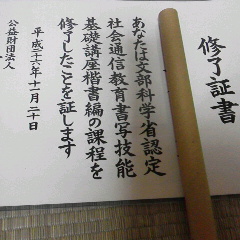 修了証書
あなたは文部科学省認定
社会通信教育書写技能
基礎講座楷書編の課程を
修了したことを証します
平成二十六年十一月二十日
公益財団法人